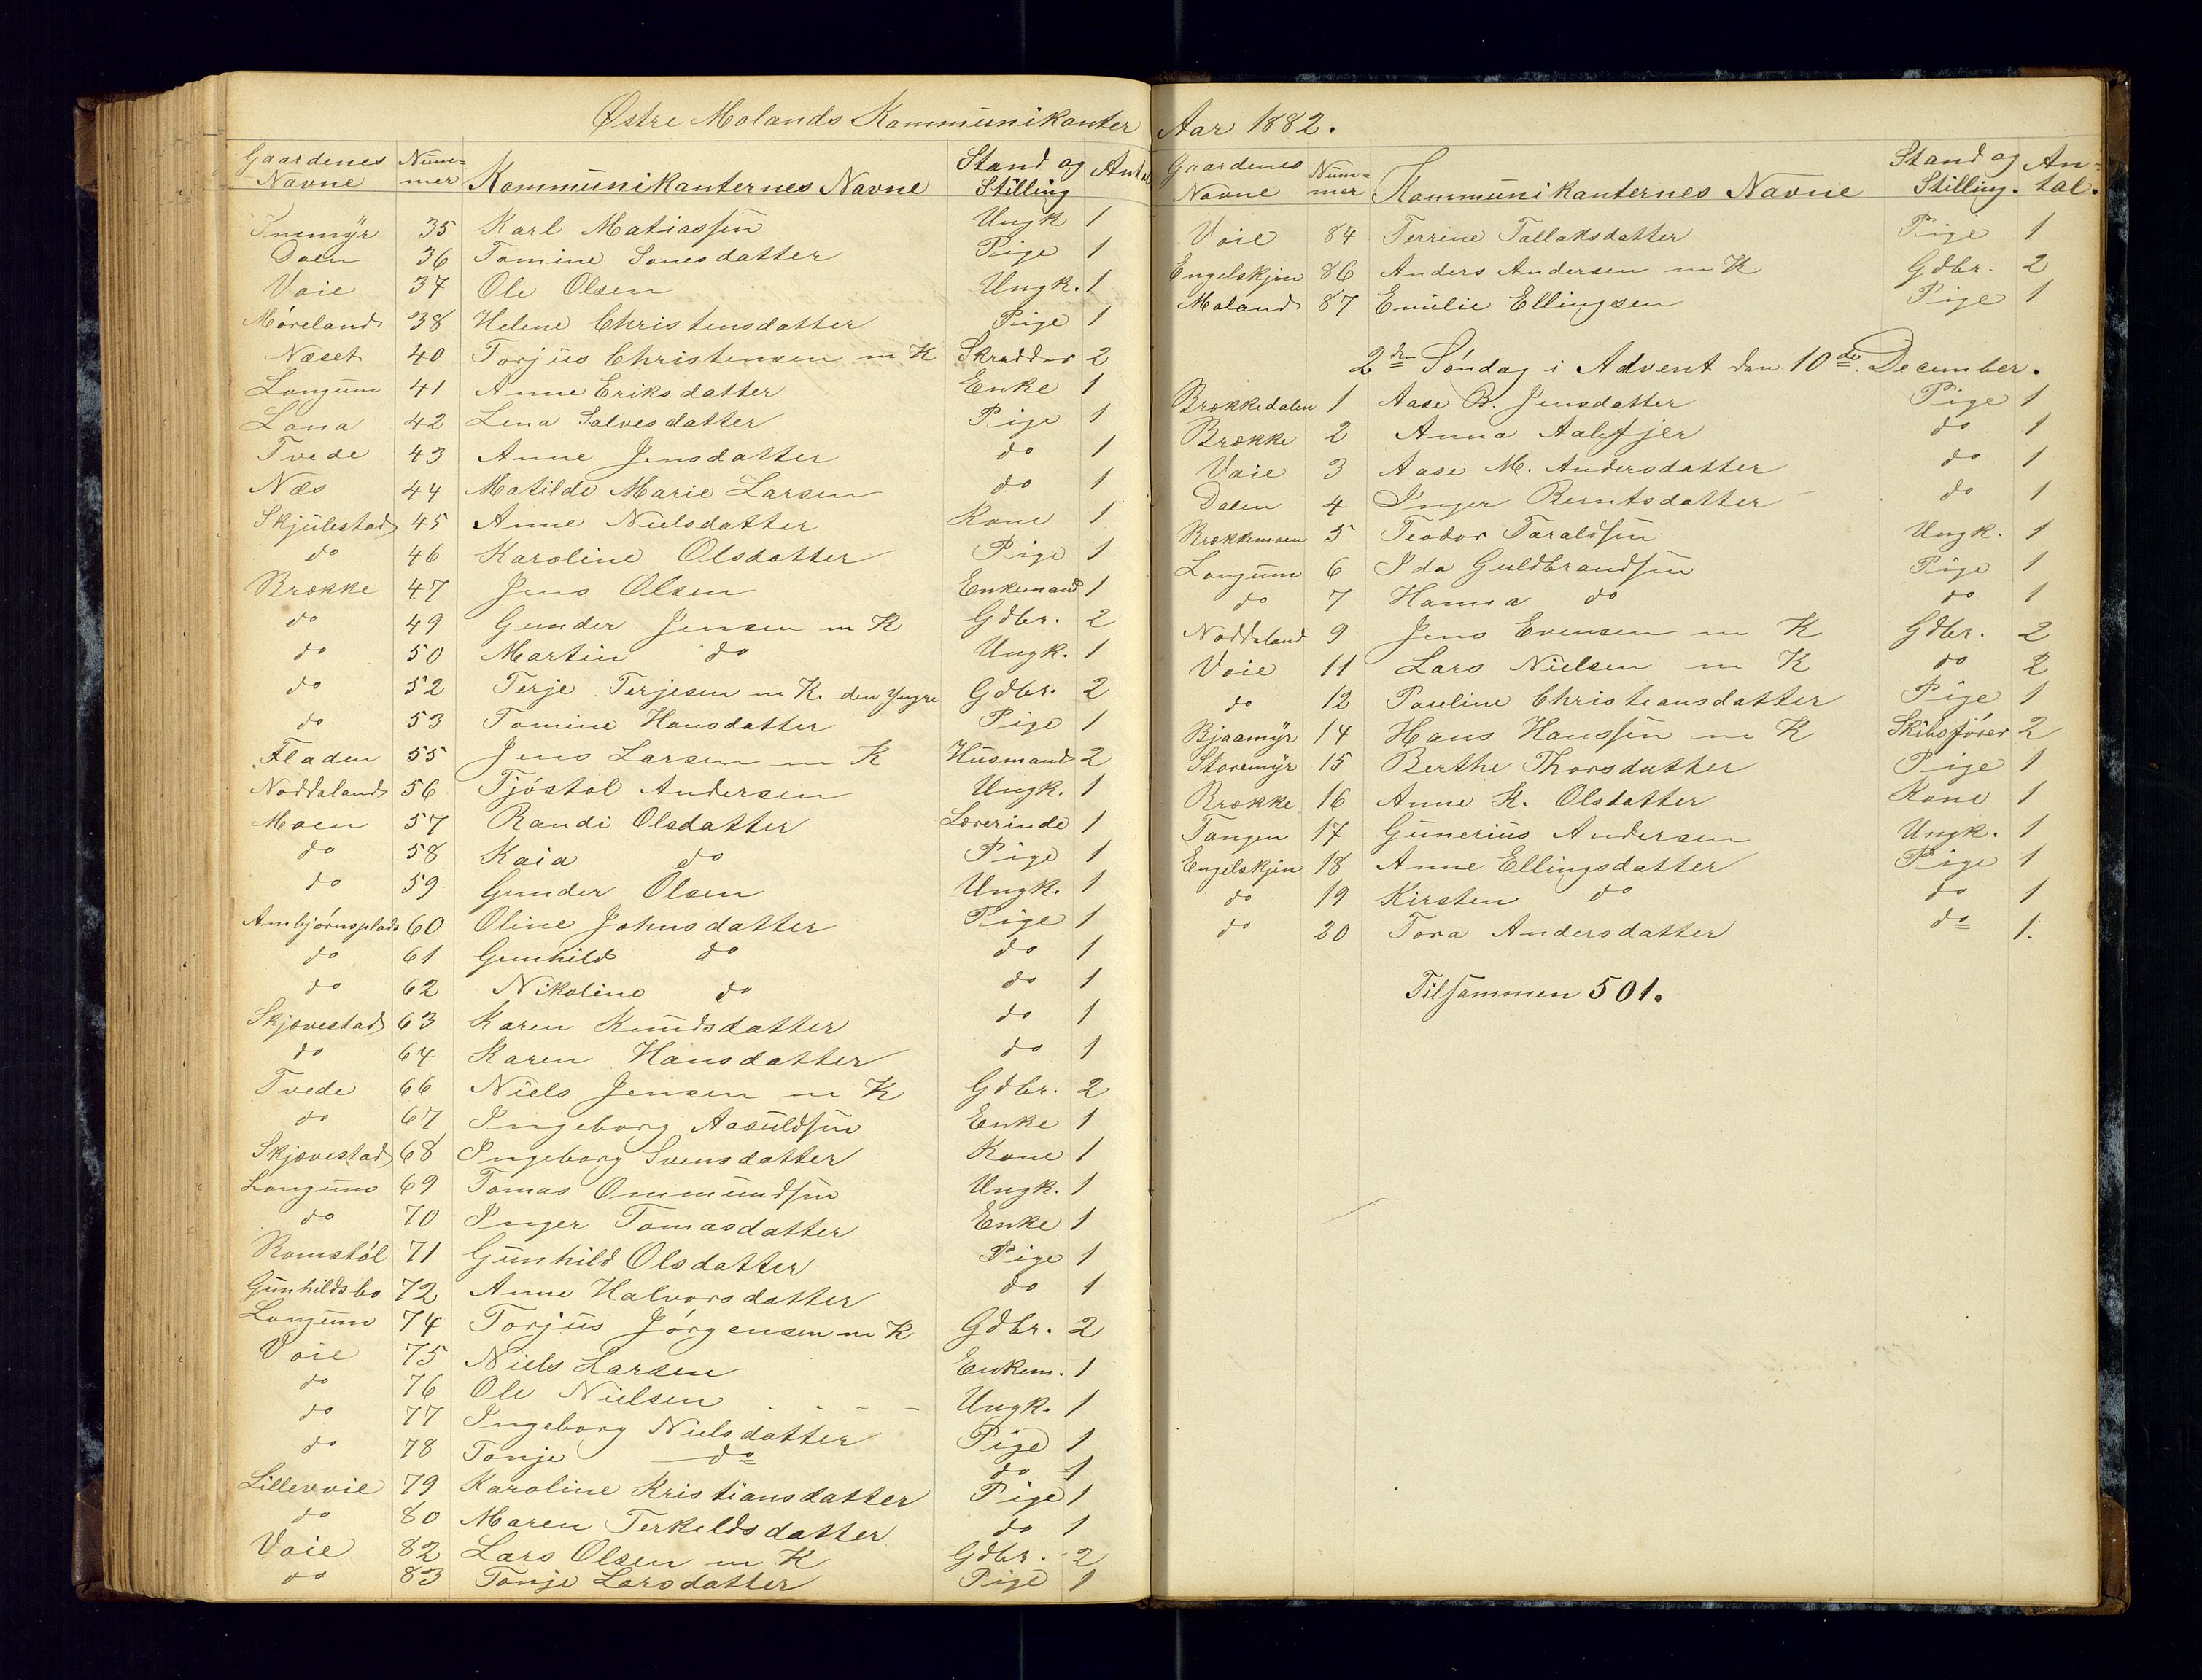 Østre Molands Kommunikanter
Gaardenes Navne Num=mer Kommunikanternes Navne Stand og Stilling Antal
Snemyr 35 Karl Matiassen Ungk 1
Dalen 36 Tomine Sonesdatter Pige 1
Vaie 37 Ole Olsen Ungk. 1
Møreland 38 Helene Christensdatter Pige 1
Næset 40 Torjus Christensen m K Skrædder 2
Longum 41 Anne Eriksdatter Enke 1
Lona 42 Lena Salvesdatter Pige 1
Tvede 43 Anne Jensdatter do 1
Næs 44 Matilde Marie Larsen do 1
Skjulestad 45 Anne Nielsdatter Kone 1
do 46 Karoline Olsdatter Pige 1
Brække 47 Jens Olsen Enkemand 1
do 49 Gunder Jensen m K Gdbr. 2
do 50 Martin do Ungk. 1
do 52 Terje Terjesen m K. den Yngre Gdbr. 2
do 53 Tomine Hansdatter Pige 1
Fladen 55 Jens Larsen m K Husmand 2
Noddeland 56 Tjøstol Andersen Ungk. 1
Moen 57 Randi Olsdatter Lærerinde 1
do 58 Kaia do Pige 1
do 59 Gunder Olsen Ungk. 1
Ambjørnsplads 60 Oline Johnsdatter Pige 1
do 61 Gunhild do do 1
do 62 Nikoline do do 1
Skjævestad 63 Karen Knudsdatter do 1
do 64 Karen Hansdatter do 1
Tvede 66 Niels Jensen m K Gdbr. 2
do 67 Ingeborg Aasuldsen Enke 1
Skjævestad 68 Ingeborg Svensdatter Kone 1
Longum 69 Tomas Ommundsen Ungk. 1
do 70 Inger Tomasdatter Enke 1
Romstøl 71 Gunhild Olsdatter Pige 1
Gunhildsbo 72 Anne Halvorsdatter do 1
Longum 74 Torjus Jörgensen m K Gdbr. 2
Vaie 75 Niels Larsen Enkem. 1
do 76 Ole Nielsen Ungk. 1
do 77 Ingeborg Nielsdatter Pige 1
do 78 Tonje do do 1
Lillevaie 79 Karoline Kristiansdatter Pige 1
do 80 Maren Terkeldsdatter do 1
Vaie 82 Lars Olsen m K Gdbr. 2
do 83 Tonje Larsdatter Pige 1
Aar 1882.
Gaardenes Navne Num=mer Kommunikanternes Navne Stand og Stilling. An=tal.
Vaie 84 Terrine Tallaksdatter Pige 1
Engelskjøn 86 Anders Andersen m K Gdbr. 2
Moland 87 Emilie Ellingsen Pige 1
2den Søndag i Advent den 10de December.
Brækkedalen 1 Aase B. Jensdatter Pige 1
Brække 2 Anna Aalefjer do 1
Vaie 3 Aase M. Andersdatter do 1
Dalen 4 Inger Berntsdatter do 1
Brækkemoen 5 Teodor Taraldsen Ungk. 1
Longum 6 Ida Guldbrandsen Pige 1
do 7 Hanna do do 1
Noddeland 9 Jens Evensen m K Gdbr. 2
Vaie 11 Lars Nielsen m K do 2
do 12 Pauline Christiansdatter Pige 1
Bjaamyr 14 Hans Hanssen m K Skibsfører 2
Storemyr 15 Berthe Thorsdatter Pige 1
Brække 16 Anne K. Olsdatter Kone 1
Tangen 17 Gunerius Andersen Ungk. 1
Engelskjøn 18 Anne Ellingsdatter Pige 1
do 19 Kirsten do do 1
do 20 Tora Andersdatter do 1.
Tilsammen 501.